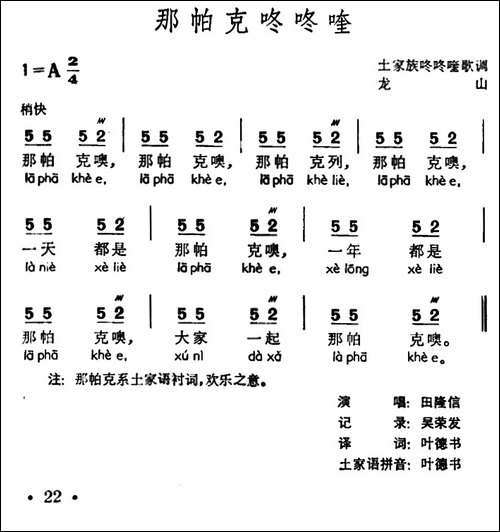 那帕克咚咚喹
1=A 2/4
土家族咚咚喹歌调
龙 山
稍快
5 5 5 2 | 5 5 5 2 | 5 5 5 2 | 5 5 5 2 |
那帕 克噢, 那帕 克噢, 那帕 克列, 那帕 克噢,
lā phā khè e, lā phā khè e, lā phā khè liè, lā phā khè e,
5 5 5 2 | 5 5 5 2 | 5 5 5 2 |
一天 都是 那帕 克噢, 一年 都是
là niè xè liè lā phā khè e, xè lōng xè liè
5 5 5 2 | 5 5 5 2 | 5 5 5 2 ‖
那帕 克噢, 大家 一起 那帕 克噢。
lā phā khè e, xú nì dà xǎ là phā khè e。
注: 那帕克系土家语衬词,欢乐之意。
演 唱: 田隆信
记 录: 吴荣发
译 词: 叶德书
土家语拼音: 叶德书
• 22 •